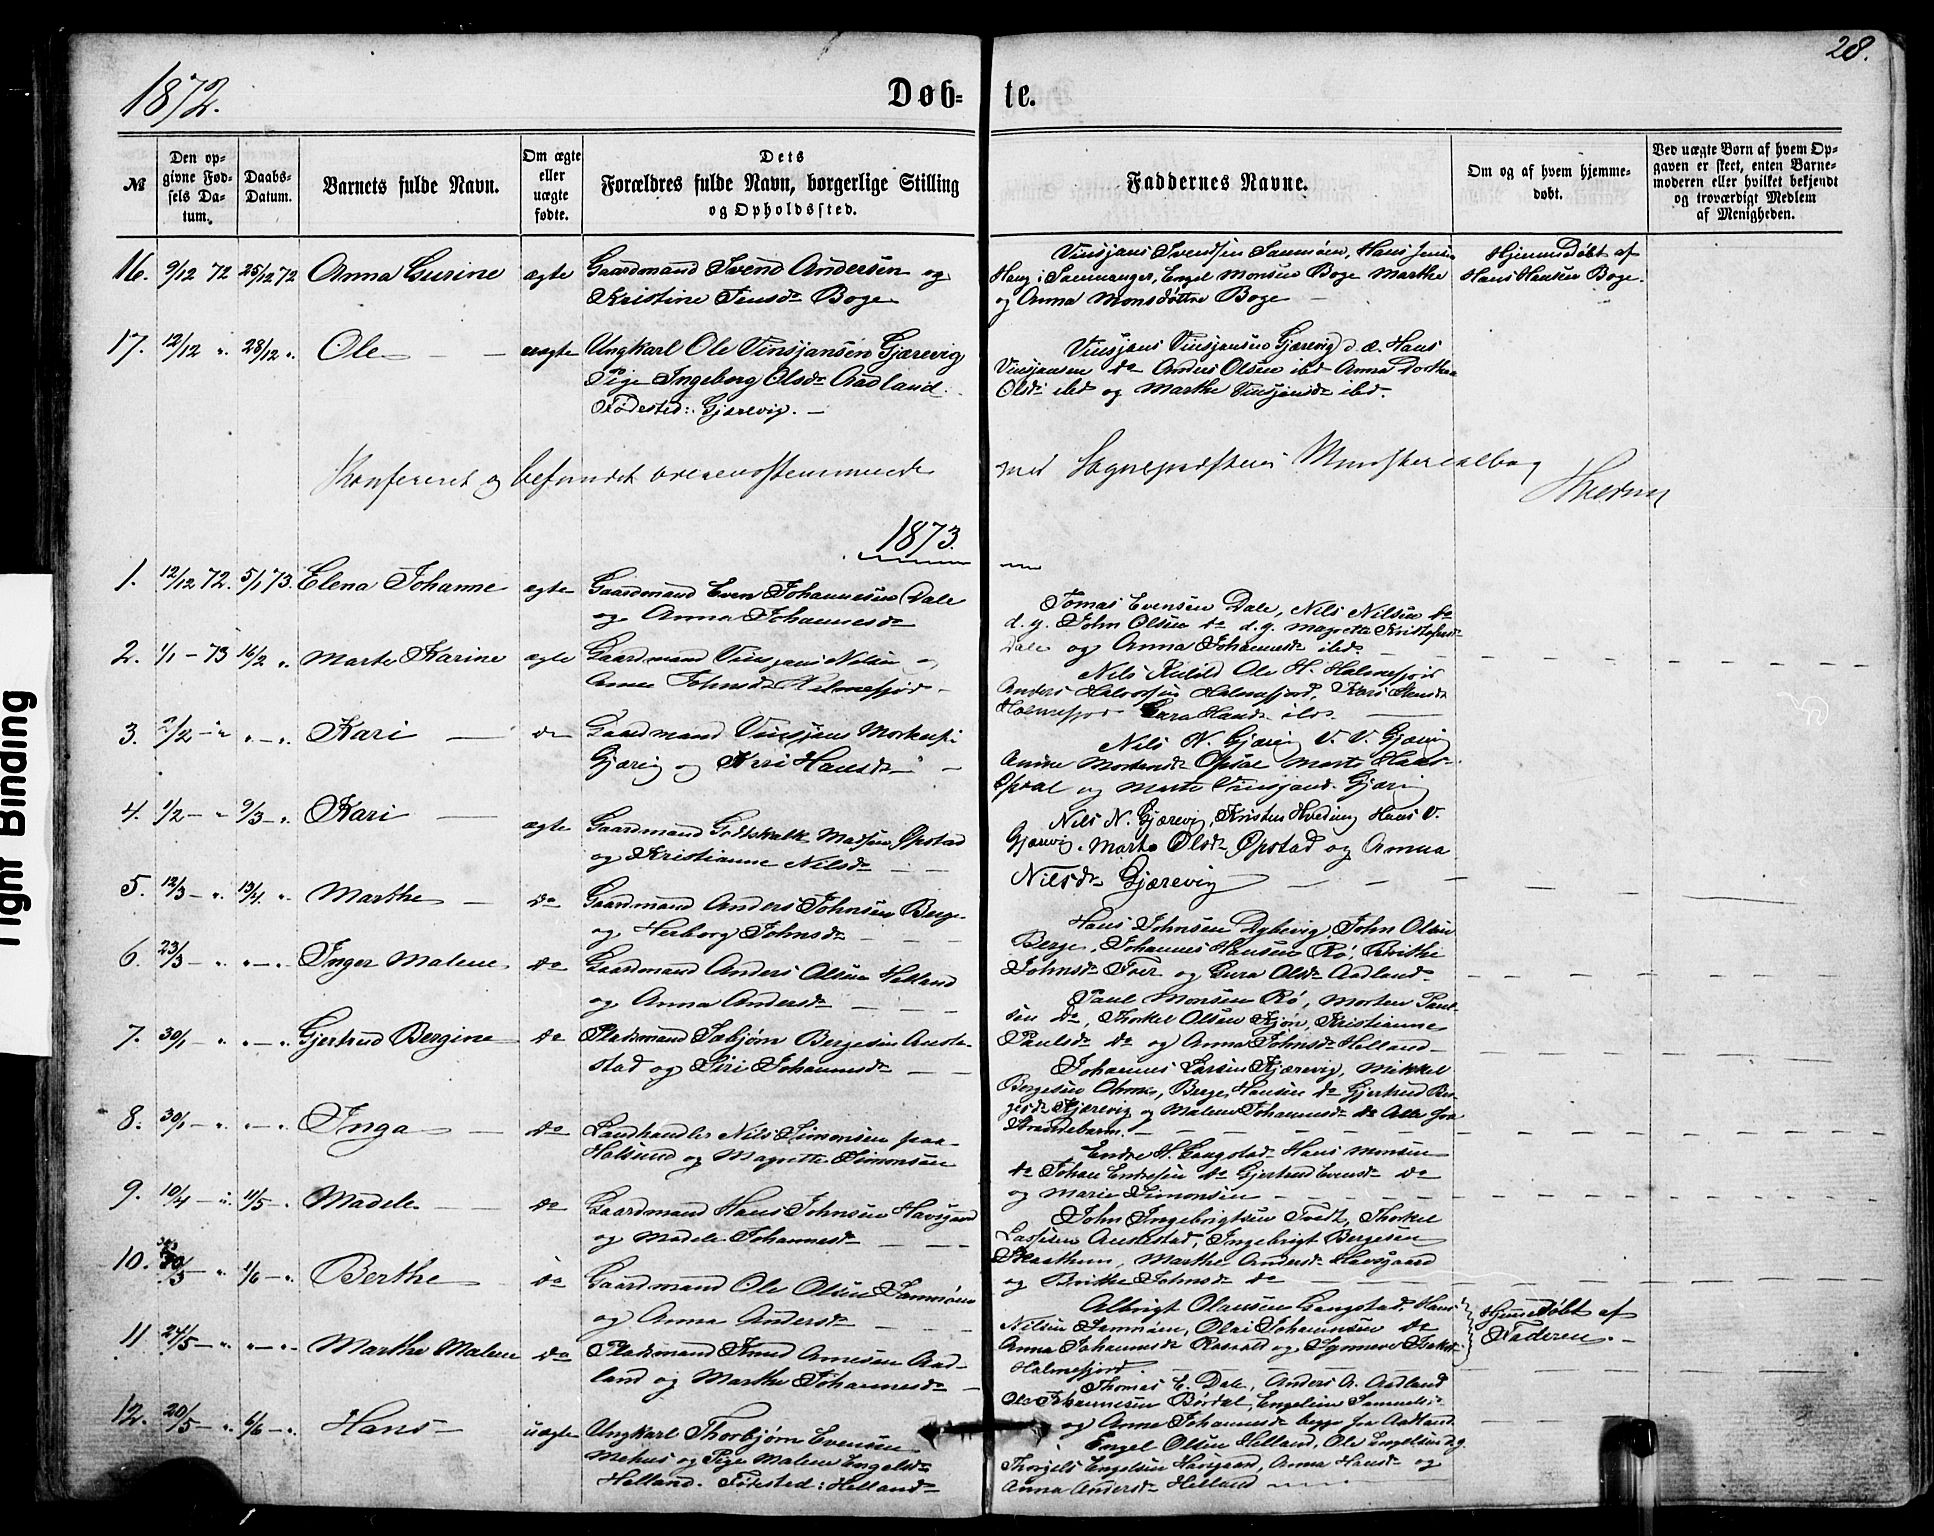 28.
1872.
Døb-
te.
№
Den op-
givne Fød-
sels Da-
tum.
Daabs-
Datum.
Barnets fulde Navn.
Om ægte
eller
uægte
fødte.
Dets
Forældres fulde Navn, borgerlige Stilling
og Opholdssted.
Faddernes Navne.
Om og af hvem hjemme-
døbt.
Ved uægte Børn af hvem Op-
gaven er skeet, enten Barne-
moderen eller hvilket bekjendt
og troværdigt Medlem
af Menigheden.
16. 9/12 72 25/12 72 Anna Lusine ægte Gaardmand Svend Andersen og
Kristine Jensdr Boge
Vinsjans Svendsen Samnøen, Hans Jens
Haug i Samnanger, Engel Monsen Boge Marthe
og Anna Monsdøttre Boge
Hjemmedøbt af
Hans Hansen Boge.
17. 12/12 ". 28/12 ". Ole uægte Ungkarl Ole Vinsjansen Gjærevig
Pige Ingeborg Olsdr Aadland.
Fødested: Gjærevig.
Vinsjans Vinsjansen Gjærevig d. æ. Hans
Vinsjansen do Anders Olsen ibd Anna Dorthea
Olsdr ibd og Marthe Vinsjansdr ibd.
Konfereret og befundet overensstemmende
med Sognepræstens Ministerialbog
1873.
1. 12/12 72. 5/1 73. Elena Johanne ægte Gaardmand Even Johannesen Dale
og Anna Johannesdr
Tomas Evensen Dale, Nils Nilsen do
d. y. John Olsen do d. y. Magrete Kristofersdr
Dale og Anna Johannesdr ibd.
2. 1/1 - 73 16/2 ". Marte Karine ægte Gaardmand Vinsjans Nilsen og
Anne Johnsdr Holmefjord
Nils Ole H. Holmefjord
Anders Halvorsen Holmefjord, Kari
Holmefjord Hansdr ibd.
3. 2/2 - " " - ". Kari do Gaardmand Vinsjans
Gjærvig og Kari Hansdr
Nils N. Gjærvig V. V. Gjærvig
Anne Mortensdr Opstad Marte Hansdr
Opstad og Marte Vinsjansdr Gjærvig
4. 1/2 - " 9/3 - ". Kari ægte Gaardmand Godskalk Madsen Opstad
og Kristianne Nilsdr
Nils N. Gjærevig, Kristen Hveding Hans V.
Gjærevig. Marte Olsdr Opstad og Anna
Nilsdr Gjærevig
5. 12/3 - ". 13/4 ". Marthe do Gaardmand Anders Johnsen Berge
og Herborg Johnsdr
Hans Johnsen Dybevig, John Olsen
Berge, Johannes Hansen Rø, Brithe
Johnsdr Tver og Guro Olsdr Aadland
6. 23/3 - ". " - ". Inger Malene do Gaardmand Anders Olsen Helland
og Anna Andersdr
Paul Monsen Rø, Morten Paul-
sen do, Thorkel Olsen Kjøn, Kristianne
Paulsdr do og Anna Johnsdr Helland
7. 30/1 - ". " - ". Gjertrud Bergine do Pladsmand Isbjørn Bergesen Auste-
stad og Siri Johannesdr
Johannes Larsen Kjærevig, Mikkel
Bergesen Berge Hansen do Gjertrud Ber-
gesdr Kjærevig og Malene Johannesdr do Alle fra
Strandebarm.
8. 30/1 - ". " - ". Inga do Landhandler Nils Simonsen paa
Holsund og Magrethe Simonsen
Endre H. Langstad Hans Monsen
do Johan Endresen do Gjertrud Evensdr do
og Marie Simonsen
9. 10/4 - ". 11/5 - ". Madele do Gaardmand Hans Johnsen Havsgaard
og Madele Johannesdr
John Ingebrigtsen Tvedt, Thorkel
Lassesen Austestad, Ingebrigt Bergesen
Skaathun, Marthe Andersdr Havsgaard
og Brithe Johnsdr do
10. 30/3 - ". 1/6 - ". Berthe do Gaardmand Ole Olsen Samnøen
og Anna Andersdr
Albrigt Olausen Langstad, Hans
Nilsen Samnøen, Olai Johannesen do
Anna Johannesdr og Synneve
Holmefjord.
Hjemmedøbt af
Faderen.
11. 24/5 - ". " - ". Marthe Malene do Pladsmand Knud Arnesen Aad-
land og Marthe Johannesdr
Thomas E. Dale, Anders A. Aadland
Ole Johannesen Børdal, Engelien Samuelsdr
og Anna Johannesdr begge fra Aadland
12. 20/5 - ". 6/6 - ". Hans uægte Ungkarl Thorbjørn Evensen
Mehus og Pige Malene Engelsdr
Helland. Fødested: Helland
Engel Olsen Helland, Ole Engelsen d. y.
Thorgils Engelsen Havsgaard, Anna Hansdr og
Anna Andersdr Helland
Tight Binding